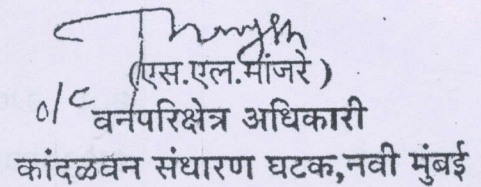 (एस.एल.मांजरे )
o/c वनपरिक्षेत्र अधिकारी
कांदळवन संधारण घटक,नवी मुंबई